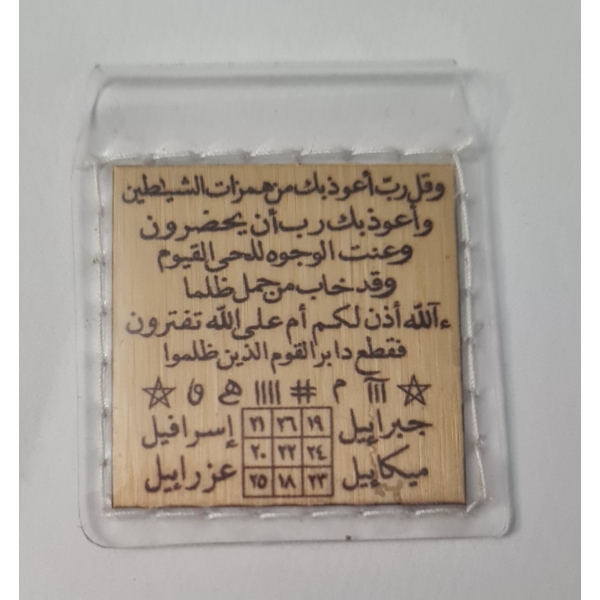 وقل رب أعوذ بك من همزات الشيطين
وأعوذ بك رب أن يحضرون
وعنت الوجوه للحى القيوم
وقد خاب من حمل ظلما
ءآلله أذن لكم أم على الله تفترون
فقطع دابر القوم الذين ظلموا
☆ ااا م # اااا ھ و ☆
جبراييل ١٩ ٢٦ ٢١ إسرافيل
٢٤ ٢٢ ٢٠
ميكاييل ٢٣ ١٨ ٢٥ عزراييل